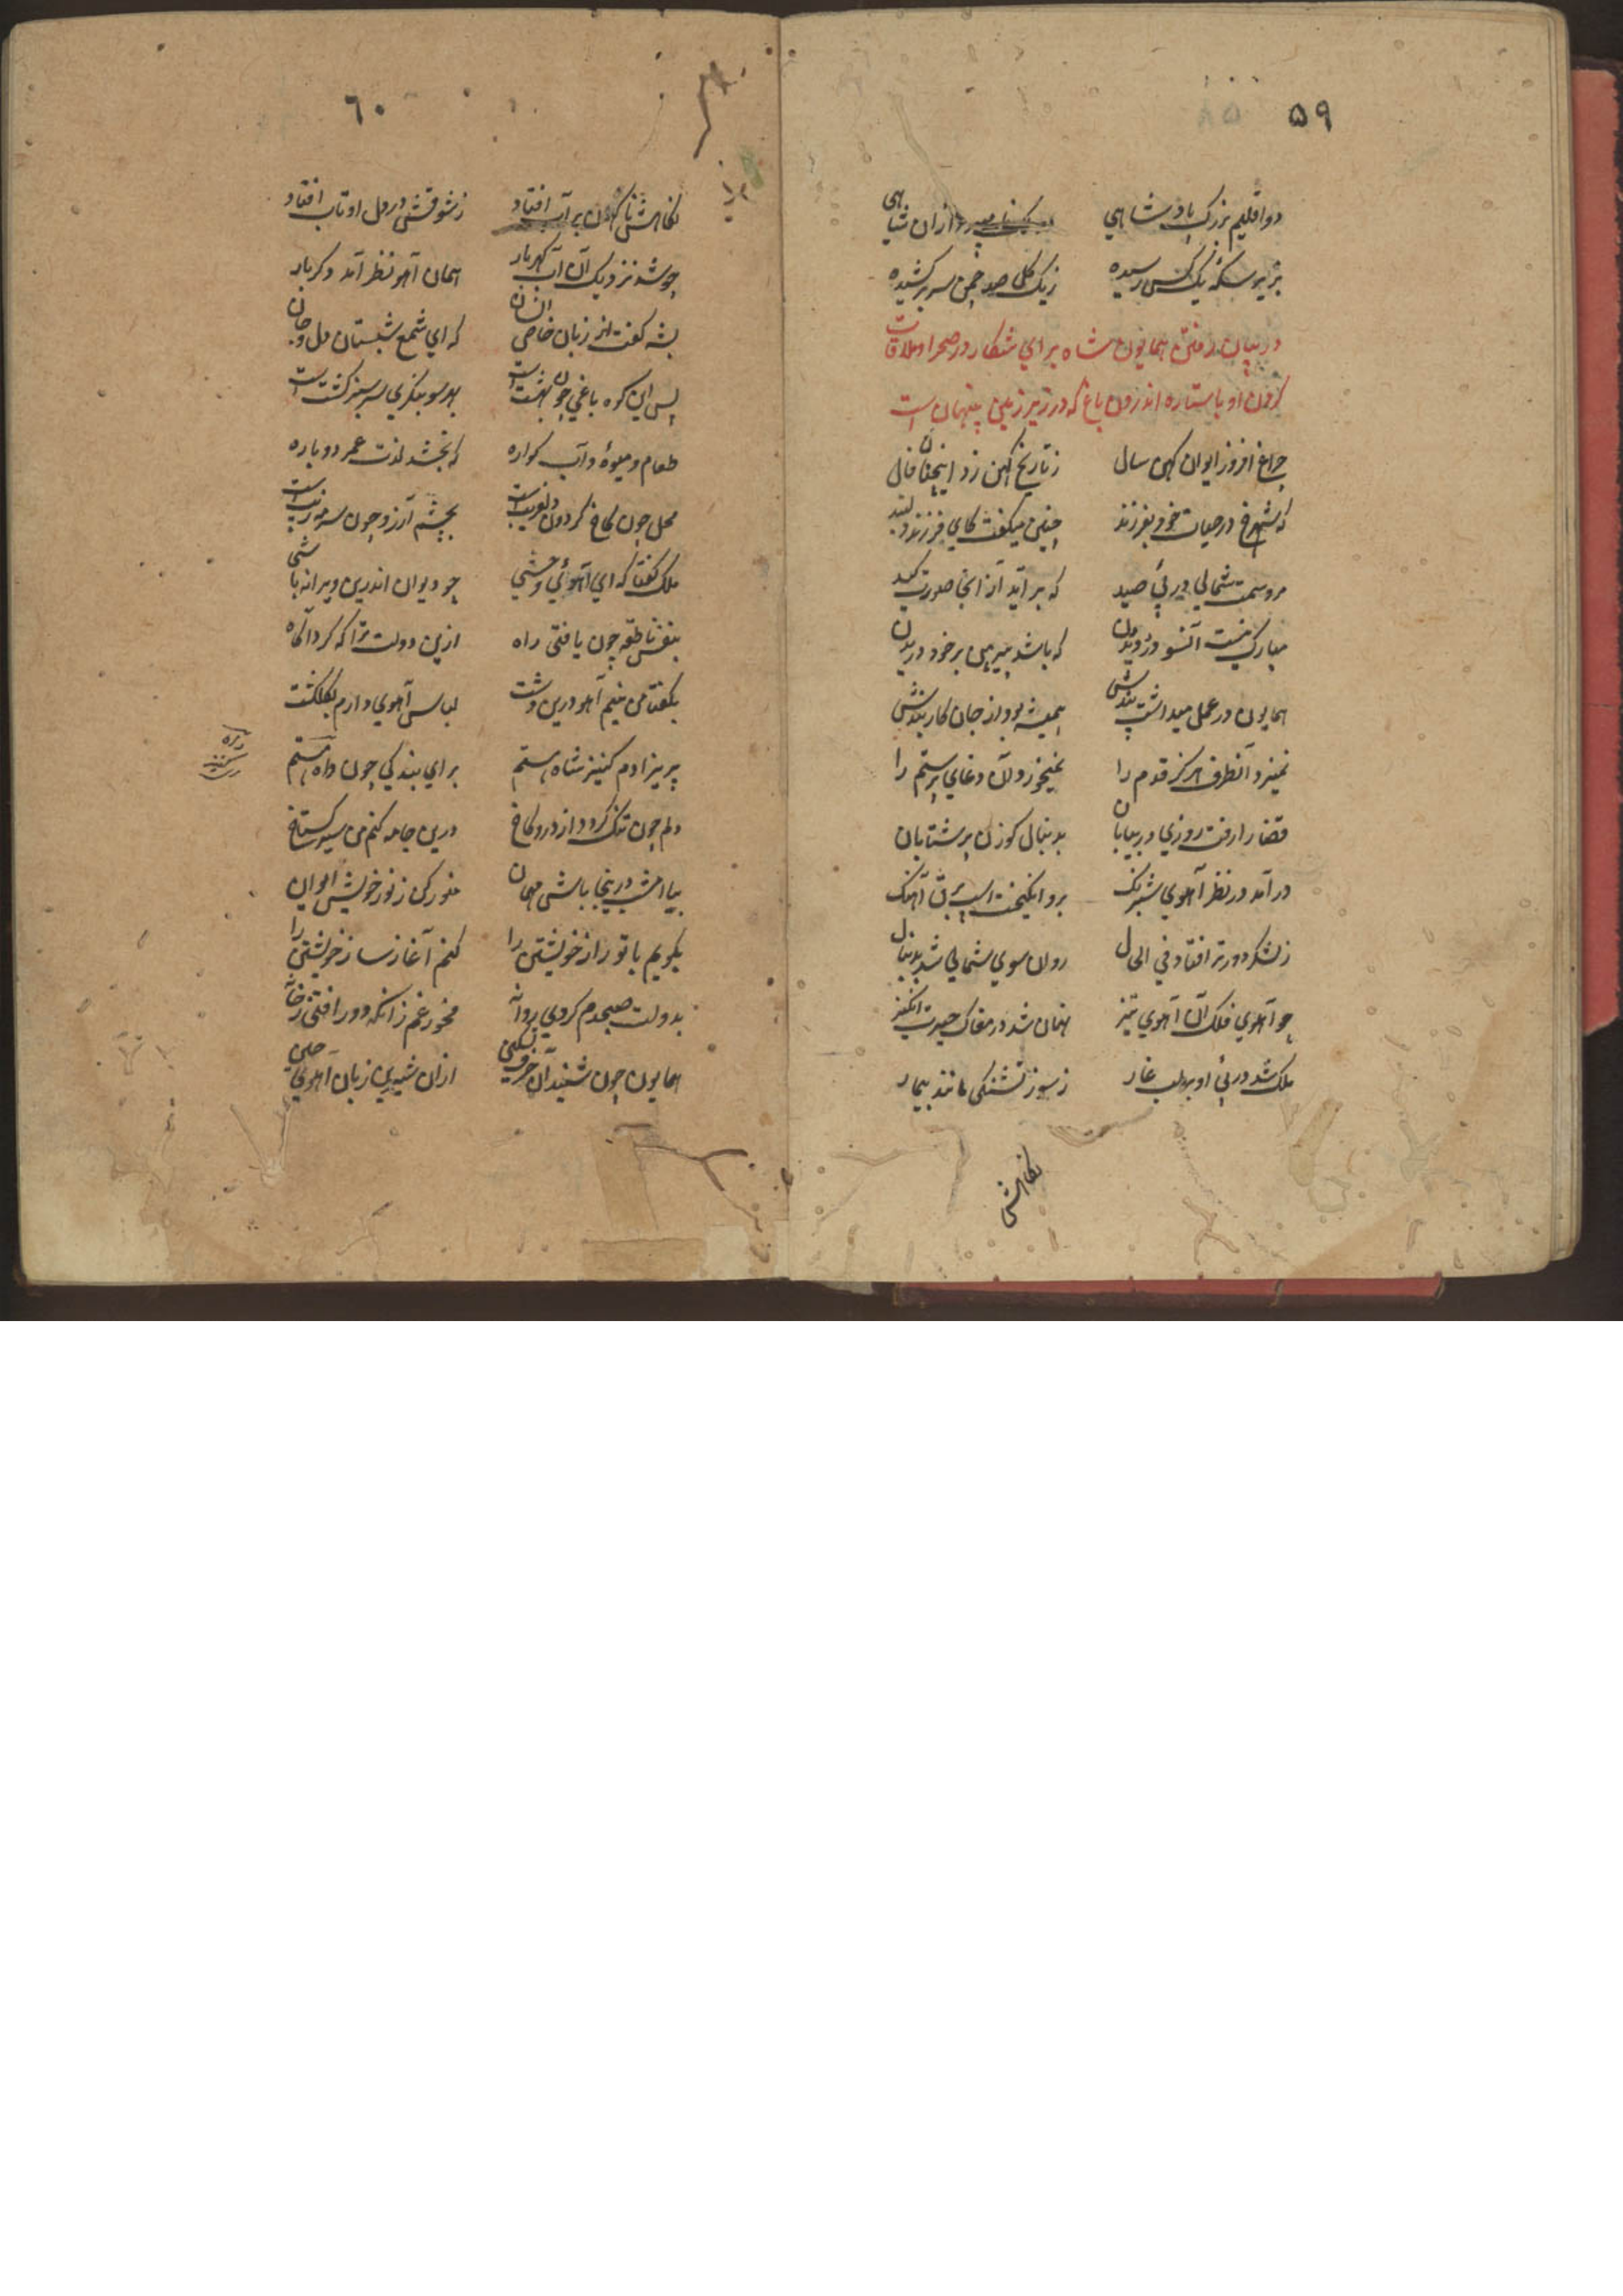 ۵۹
دو اقلیم بزرگ پادشاهي ازان شاهی
بزیر سکهٔ یک کس رسیده زیک گل صد چمن سر بر کشیده
در بیان رفتن همایون شاه براي شکار در صحرا و ملاقات
کردن او با ستاره اندرون باغ که در زیر زمین پنهان است
چراغ افروز ایوان کهن سال ز تاریخ کهن زد اینچنان فال
که شهرخ در حیات خود بفرزند چنین میگفت کاي فرزند دلبند
مرو سمت شمالي در پئ صید که بر آید از انجا صورت کید
مبارک نیست آنسو در دویدن که باشد پیرهن بر خود دریدن
همایون در عمل میداشت پندش همیشه بود از جان کاربندش
نمیزد آنطرف هرگز قدم را نمیخورد آن دغاي پرستم را
قضا را رفت روزي در بیابان بدنبال گوزن پر شتابان
در آمد در نظر آهوي شبرنگ برو انگیخت اسپ برق آهنگ
ز لشکر دورتر افتاد في الحال روان سوي شمالي شد بدنبال
چو آهوي فلک آن آهوي تیز نهان شد در مغاک حیرت انگیز
ملک شد در پئ او بر لب غار ز سوز تشنگی مانند بیمار
نگاهش
٦٠
نگاهش ناگهان بر آب افتاد ز شوقش در دل او تاب افتاد
چو شد نزدیک آن آب گهربار همان آهو نظر آمد دگر بار
بشه گفت از زبان خاص انسان که اي شمع شبستان دل و جان
پس این کوه باغي چون بهشت است بهر سو بنگري سرسبز کشت است
طعام و میوهٔ و آب گواره که بخشد لذت عمر دوباره
محل چون کاخ گردون دلفریب است بچشم آرزو چون سرمه زیب است
ملک گفتا که اي آهوئي وحشي چو دیوان اندرین ویرانه باشی
بنفس ناطقه چون یافتی راه ازین دولت ترا که کرد آگاه
بگفتا من نیم آهو درین دشت لباس آهوي دارم بگلگشت
پریزادم کنیز شاه هستم براي بندگي چون داه هستم
دلم چون تنگ گردد از در و کاخ درین جامه کنم من سیر گستاخ
بیا امشب درینجا باش مهمان منور کن ز نور خویش ایوان
بگویم با تو راز خویشتن را کنم آغاز ساز خویشتن را
بدولت صبحدم گردي روانه مخور غم زانکه دور افتی ز خانه
همایون چون شنید آن حرف شیرین ازان شیرین زبان آهوي چین